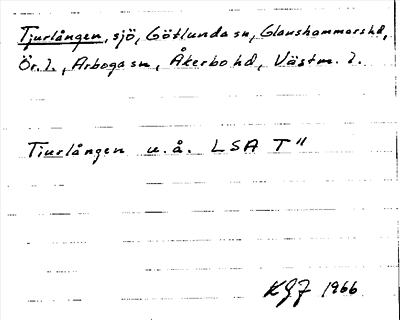 Tjurlången, sjö, Götlunda sn, Glanshammars hd,
Ör. l., Arboga sn, Åkerbo hd, Västm. l.
Tiurlången u.å. LSA T"
KGJ 1966